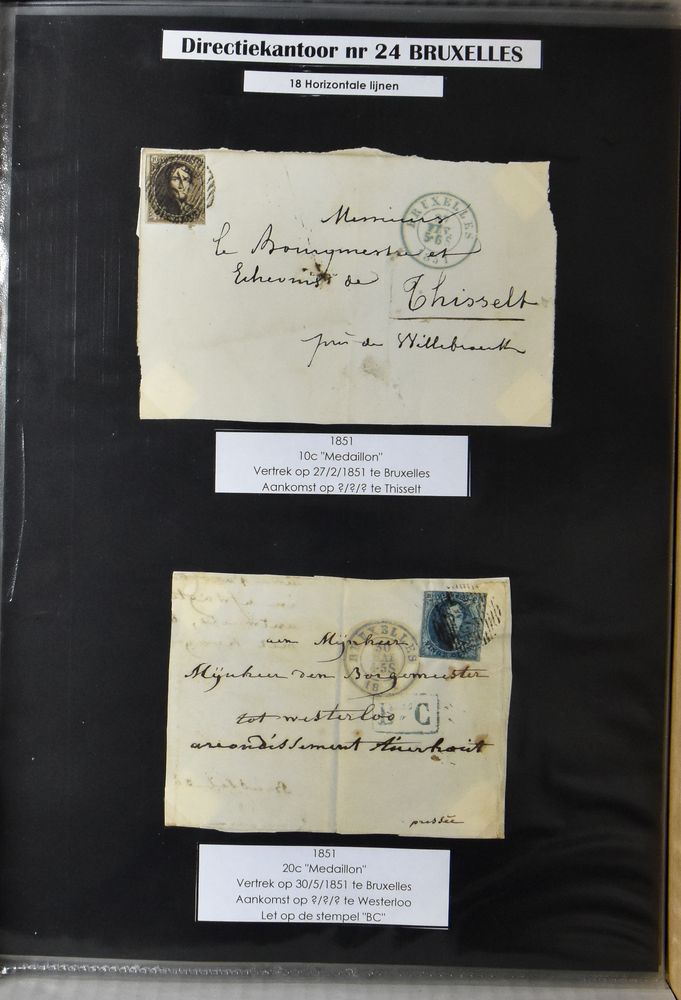 Directiekantoor nr 24 BRUXELLES
18 Horizontale lijnen
BRUXELLES
1851
Messieurs
le Bourgmestre et
Echevins de
Thisselt
près de Willebroeck
1851
10c "Medaillon"
Vertrek op 27/2/1851 te Bruxelles
Aankomst op ?/?/? te Thisselt
BRUXELLES
30
MAI
18
aen Mijnheer
Mijnheer den Borgemeester
tot westerloo
B C
arrondissement Turnhout
pressée
1851
20c "Medaillon"
Vertrek op 30/5/1851 te Bruxelles
Aankomst op ?/?/? te Westerloo
Let op de stempel "BC"